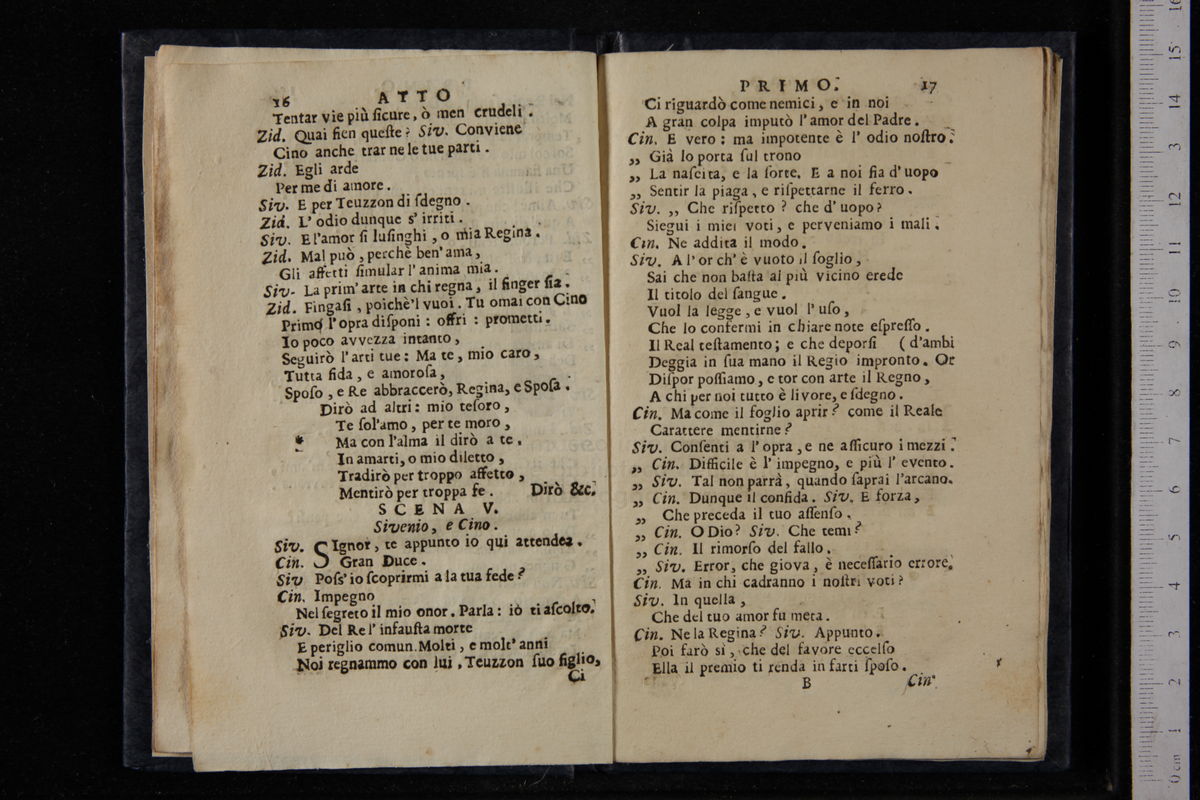 16 ATTO
Tentar vie più ſicure, ò men crudeli.
Zid. Quai ſien queſte? Siv. Conviene
Cino anche trar ne le tue parti.
Zid. Egli arde
Per me di amore.
Siv. E per Teuzzon di ſdegno.
Zid. L'odio dunque s'irriti.
Siv. E l'amor ſi luſinghi, o mia Regina.
Zid. Mal può, perchè ben'ama,
Gli affetti ſimular l'anima mia.
Siv- La prim'arte in chi regna, il finger ſia.
Zid. Fingaſi, poichè'l vuoi. Tu omai con Cino
Primo l'opra diſponi: offri: prometti.
Io poco avvezza intanto,
Seguirò l'arti tue: Ma te, mio caro,
Tutta fida, e amoroſa,
Spoſo, e Re abbraccerò, Regina, e Spoſa.
Dirò ad altri: mio teſoro,
Te ſol'amo, per te moro,
* Ma con l'alma il dirò a te.
In amarti, o mio diletto,
Tradirò per troppo affetto,
Mentirò per troppa fe. Dirò &c.
SCENA V.
Sivenio, e Cino.
Siv. SIgnor, te appunto io qui attendea.
Cin. Gran Duce.
Siv Poſs'io ſcoprirmi a la tua fede?
Cin. Impegno
Nel ſegreto il mio onor. Parla: iò ti aſcolto.
Siv. Del Re l'infauſta morte
E periglio comun. Molti, e molt'anni
Noi regnammo con lui, Teuzzon ſuo figlio,
Ci
PRIMO. 17
Ci riguardò come nemici, e in noi
A gran colpa imputò l'amor del Padre.
Cin. E vero: ma impotente è l'odio noſtro.
„ Già lo porta ſul trono
„ La naſcita, e la ſorte. E a noi ſia d'uopo
„ Sentir la piaga, e riſpettarne il ferro.
Siv. „ Che riſpetto? che d'uopo?
Siegui i miei voti, e perveniamo i mali.
Cin. Ne addita il modo.
Siv. A l'or ch'è vuoto il ſoglio,
Sai che non baſta al più vicino erede
Il titolo del ſangue.
Vuol la legge, e vuol l'uſo,
Che lo confermi in chiare note eſpreſſo.
Il Real teſtamento; e che deporſi (d'ambi
Deggia in ſua mano il Regio impronto. Or
Diſpor poſſiamo, e tor con arte il Regno,
A chi per noi tutto è livore, e ſdegno.
Cin. Ma come il foglio aprir? come il Reale
Carattere mentirne?
Siv. Conſenti a l'opra, e ne aſſicuro i mezzi.
„ Cin. Difficile è l'impegno, e più l'evento.
„ Siv. Tal non parrà, quando ſaprai l'arcano.
„ Cin. Dunque il confida. Siv. E forza,
„ Che preceda il tuo aſſenſo.
„ Cin. O Dio? Siv. Che temi?
„ Cin. Il rimorſo del fallo.
„ Siv. Error, che giova, è neceſſario errore.
Cin. Ma in chi cadranno i noſtri voti?
Siv. In quella,
Che del tuo amor fu meta.
Cin. Ne la Regina? Siv. Appunto.
Poi farò sì, che del favore eccelſo
Ella il premio ti renda in farti ſpoſo.
B Cin.